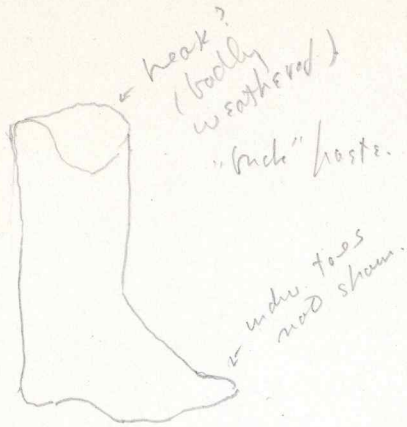 break?
(badly
weathered)
"brick" paste.
indiv. toes
not shown.